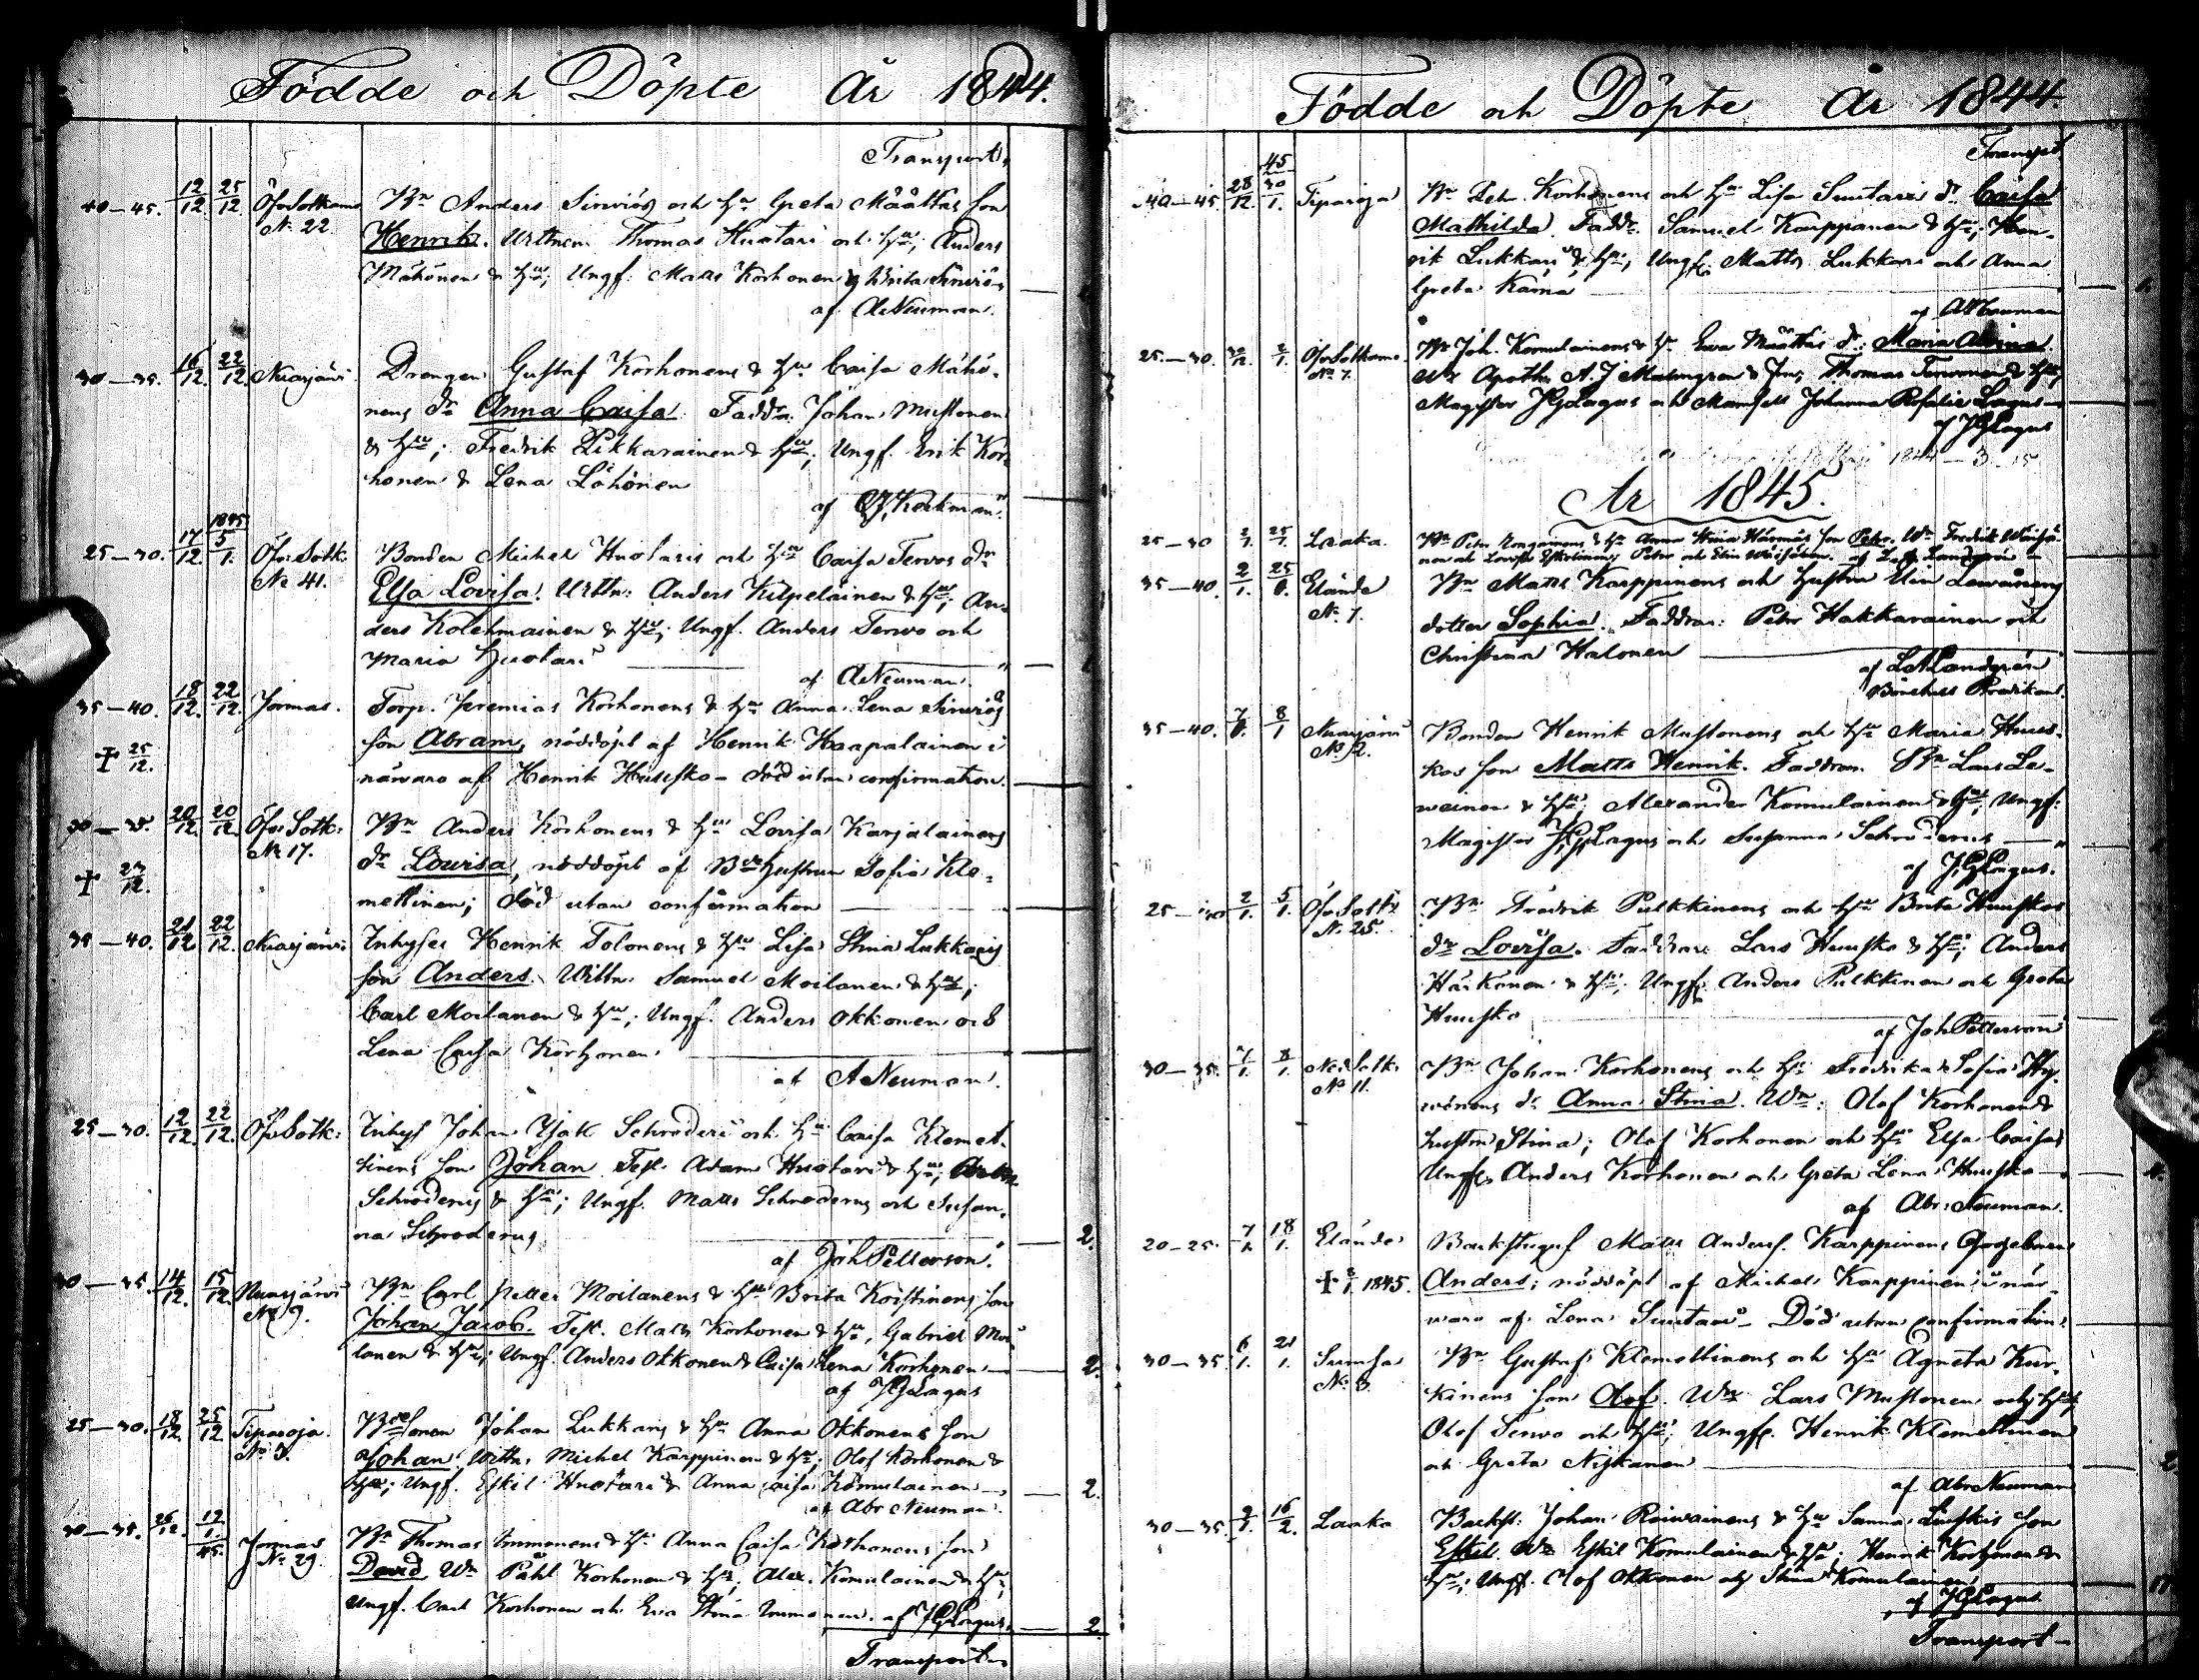 Födde och Döpte År 1844.
Transport
40–45. 12/12. 25/12. Öfvr Sotkamo Bn Anders Sirviös och hu Greta Määttäs son
No 22. Henrik. Wittnen Thomas Huotari och hu; Anders
Mähönen & hu; Ungf. Matts Korhonen & Brita Sirviö
af A Neuman.
30–35. 16/12. 22/12. Drengen Gustaf Korhonens & hu Caisa Mähö-
nens dr Anna Caisa. Faddr. Johan Mustonen
& hu; Fredrik Pikkarainen & hu; Ungf. Erik Kor-
honen & Lena
af Keckman
1845
25–30. 17/12. 5/1. Öfvr Sotk. Bonden Michel Huotaris och hu Caisa Tervos dr
No 41. Elsa Lovisa. Wittn: Anders Kilpeläinen & hu; An-
ders Kolehmainen & hu; Ungf. Anders Tervo och
Maria Huotari
af A Neuman.
35–40. 18/12. 22/12. Jormas. Torp. Jeremias Korhonens & hu Anna Lena Sirviös
son Abram, nöddöpt af Henrik Haapalainen i
+ 25/12. närvaro af Henrik – död utan confirmation.
30–35. 20/12. 20/12. Öfvr Sotk: Bn Anders Korhonens & hu Lovisa Karjalainens
No 17. dr Lowisa, nöddöpt af hustrun Sofia Kle-
+ 27/12. mettinen; död utan confirmation
35–40. 21/12. 22/12. Inhyses Henrik Tolonens & hu Lisa Stina Lukkaris
son Anders. Wittn. Samuel Moilanen & hu;
Carl Moilanen & hu; Ungf. Anders Okkonen och
Lena Caisa Korhonen
af A Neuman.
25–30. 12/12. 22/12. Öfv Sotk: Inhys Johan Isak Schroderi och hu Caisa Klemet-
tinens son Johan. Test. Adam Huotari & hu;
Schroderus & hu; Ungf. Matts Schroderus och Susan-
na Schroderus 2.
af Joh Petterson.
30–35. 14/12. 15/12. Nuasjärvi Bn Carl Petter Moilanens & hu Brita Koistinens son
No 9. Johan Jacob. Test. Matts Korhonen & hu, Gabriel Moi-
lanen & hu; Ungf. Anders Okkonen & Caisa Lena Korhonen 2.
af J G Lagus
25–30. 18/12. 25/12 Tipasoja Bdesonen Johan Lukkaris & hu Anna Okkonens son
No 3. Johan. Wittn. Michel Karppinen & hu; Olof Korhonen &
hu; Ungf. Eskil Huotari & Anna Caisa Komulainen 2.
af Abr Neuman.
30–35. 26/12. 12/1. 45. Jormas Bn Thomas Immonens & hu Anna Caisa Korhonens son
No 29. David Wn Påhl Korhonen & hu; Alex. Komulainen & hu;
Ungf. Carl Korhonen och Eva Stina Immonen. af J G Lagus. 2.
Transport
Födde och Döpte År 1844.
Transpt
45
40–45. 28/12. 30/1. Tipasoja Bn Petr Korhonens och hu Lisa Suutaris dr Caisa
Mathilda. Faddr. Samuel Karppanen & hu; Hen-
rik Lukkari & hu; Ungf. Matts Lukkari och Anna
Greta
af A Neuman
25–30. 2/1. Öfvr Sotkamo Bn Joh. Komulainens & hu Eva Määttäs dr: Maria
No 7. Wn Apoth. A. J Malmgren & Fru; Thomas & hu;
Magister J G Lagus och Mamsell Johanna Rosalie Lagus
af J G Lagus
År 1845.
25–30 2/1. 25/1. Laaka. Bn Petr & hu Anna Stina son Petr. Wn Fredrik
nen och Lovisa Petr och Elin af L A Landgrén
35–40. 2/1. 25/1. Elände Bn Matts Karppinens och hustrun Elin
No 7. dotter Sophia. Faddrar: Petr Hakkarainen och
Christina Halonen
af L A Landgrén
Bönehus Predikant.
35–40. 7/1. 8/1 Nuasjärvi Bonden Henrik Mustonens och hu Maria Huus-
No 2. kos son Matts Henrik. Faddrar. Bn Lars Le-
veinen & hu; Alexander Komulainen & hu; Ungf:
Magister J G Lagus och Susanna Schroderus
af J G Lagus.
25–30 2/1. 5/1. Öfvr Sotk: Bn Fredrik Pulkkinens och hu Brita Huuskos
No 25. dr Lovisa. Faddrar Lars Huusko & hu; Anders
Härkönen & hu; Ungf. Anders Pulkkinen och Greta
Huusko
af Joh Petterson
30–35. 7/1. 8/1. Ned Sotk. Bn Johan Korhonens och hu Fredrika Sofia Hy-
No 11. vönens dr Anna Stina. Wn: Olof Korhonen &
hustru Stina; Olof Korhonen och hu Elsa Caisa
Ungf. Anders Korhonen och Greta Lena Huusko
af Abr: Neuman.
20–25. 7/1. 18/1. Elände Backstugus Matts Anders. Karppinens
+ 1845. Anders; nöddöpt af Michel Karppinen i när-
waro af Lena Suutari – Död utan confirmation.
30–35. 6/1. 21/1. Sumsa Bn Gustaf Klemettinens och hu Agneta Kur-
No 3. kinens son Olof. Wn Lars Mustonen och hu;
Olof Tervo och hu; Ungf. Henrik Klemettinen
och Greta Niskanen 2.
af Abr Neuman
30–35. 2/1. 16/2. Laaka Backst: Johan Roivainens & hu Sanna son
Eskil. Wn Eskil Komulainen & hu; Henrik Korhonen &
hu; Ungf. Olof Okkonen och Stina Komulainen
af J G Lagus
Transport